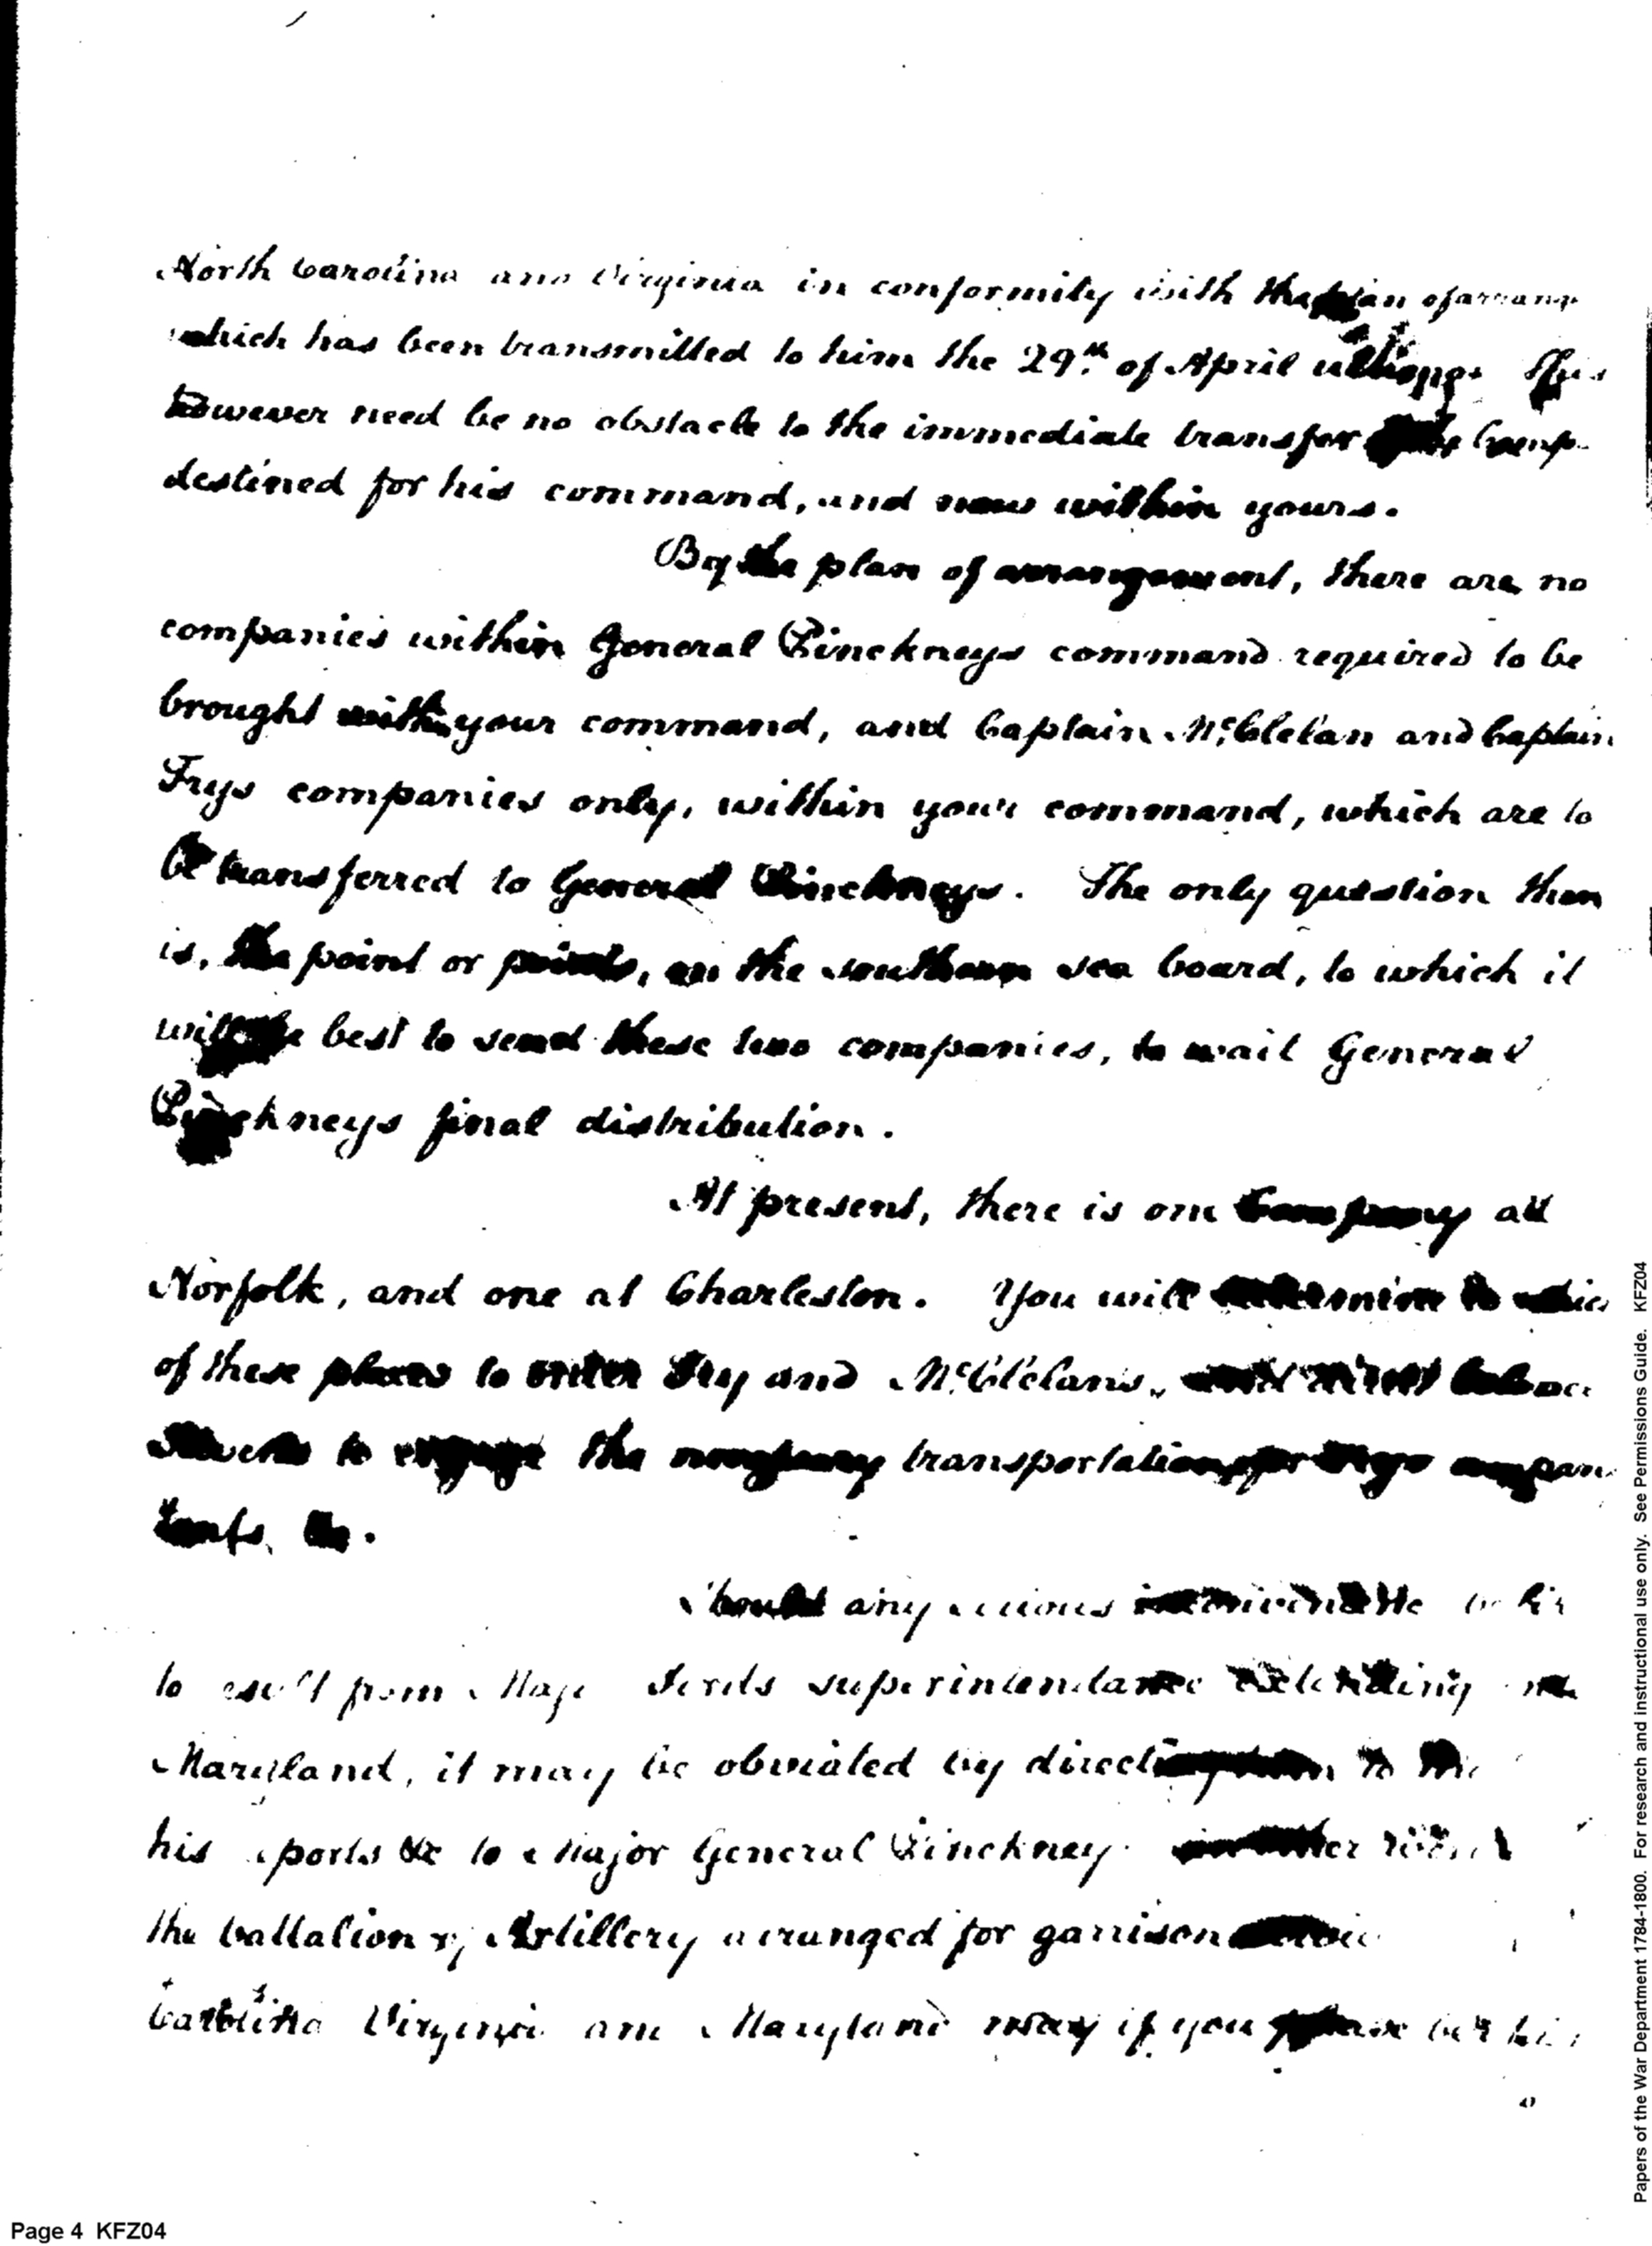 North Carolina and Virginia in conformity with the plan of arrang
which has been transmitted to him the 29th of April This
however need be no obstacle to the immediate transfer of the Comp
destined for his command, and now within yours.
By the plan of arrangement, there are no
companies within General Pinckneys command required to be
brought within your command, and Captain McClelan and Captain
Frys companies only, within your command, which are to
be transferred to General Pinckneys. The only question then
is, the point or points, on the southern sea board, to which it
will be best to send these two companies, to wait General
Pinckneys final distribution.
At present, there is one Company at
Norfolk, and one at Charleston. You will determine to whic
of these places to order Fry and McClelans,
Stevens to engage the necessary transportation for Frys compan
tents &c.
Should any serious inconvenience be
to result from Major Fords superintendance extending
Maryland, it may be obviated by directing to
his reports &c to Major General Pinckney.
the battalion of Artillery arranged for garrison
Carolina Virginia and Maryland may if you please
Page 4 KFZ04
Papers of the War Department 1784-1800. For research and instructional use only. See Permissions Guide. KFZ04